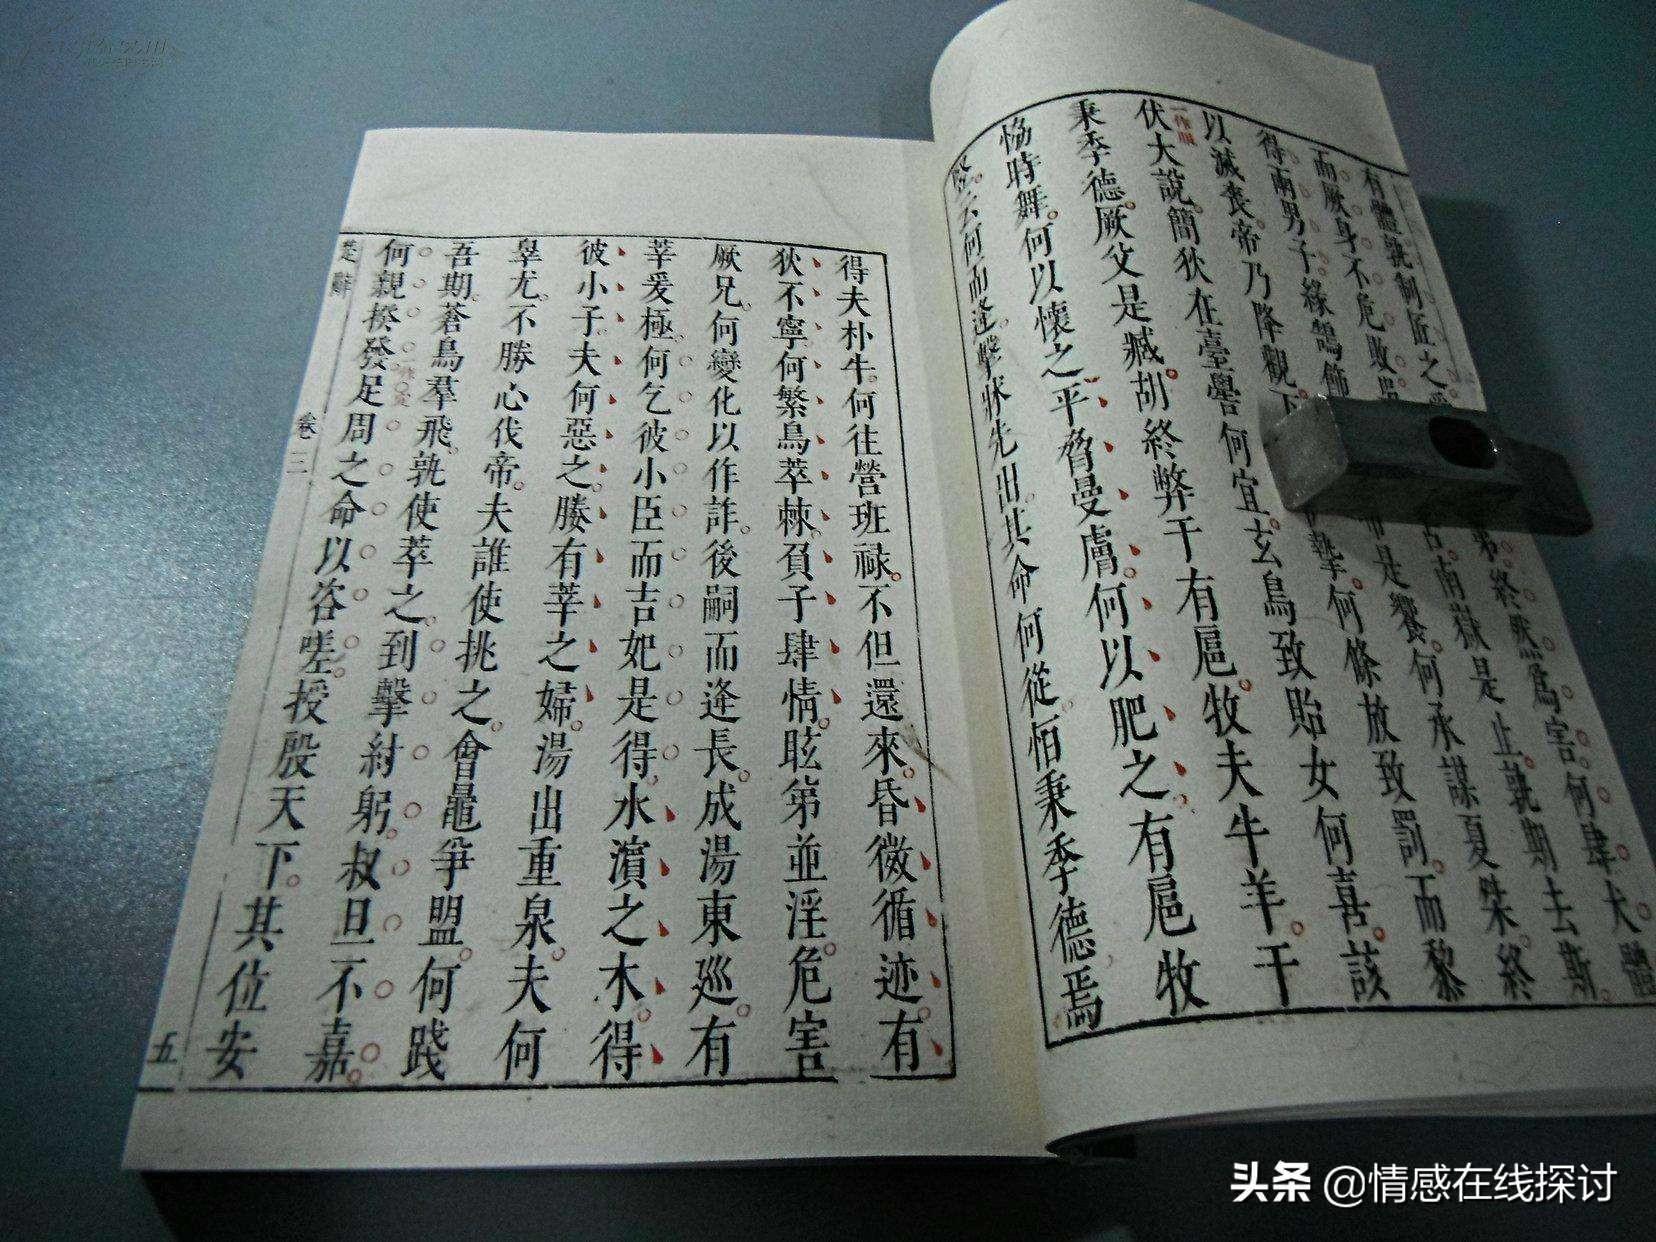 有體孰制匠之。弟。終然爲害。何肆犬體
而厥身不危敗。古。南嶽是止。孰期去斯。
得兩男子。緣鵠飾帝是饗。何承謀夏桀。終
以滅喪。帝乃降觀。下摯。何條放致罰。而黎
伏大說。簡狄在臺嚳何宜。玄鳥致貽女何喜。該
秉季德。厥父是臧。胡終弊于有扈。牧夫牛羊。干
協時舞。何以懷之。平脅曼膚。何以肥之。有扈牧
豎。云何而逢。擊牀先出。其命何從。恒秉季德。焉
得夫朴牛。何往營班祿。不但還來。昏微循迹。有
狄不寧。何繁鳥萃棘。負子肆情。眩弟並淫。危害
厥兄。何變化以作詐。後嗣而逢長。成湯東巡。有
莘爰極。何乞彼小臣而吉妃是得。水濱之木。得
彼小子。夫何惡之。媵有莘之婦。湯出重泉。夫何
辠尤。不勝心伐帝。夫誰使挑之。會鼂爭盟。何踐
吾期。蒼鳥羣飛。孰使萃之。到擊紂躬。叔旦不嘉。
何親揆發足周之命以咨嗟。授殷天下。其位安
楚辭 卷三 五
头条 @情感在线探讨